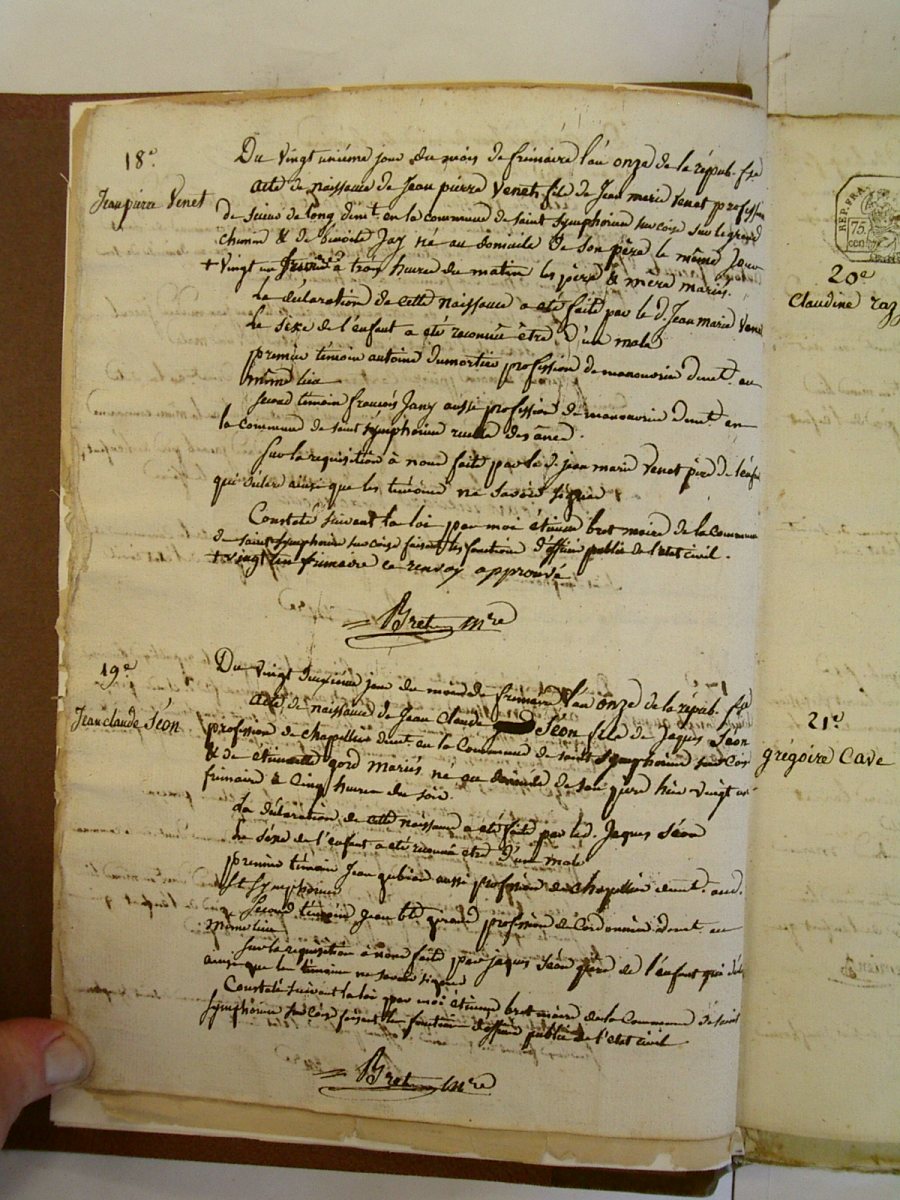 18e.
Jean pierre Venet
Du Vingt uniéme jour du mois de frimaire l'an onze de la répub. fse
acte de naissance de Jean pierre Venet, fils de Jean marie Venet profession
de sieur de long demt. en la commune de saint Symphorien sur coise sur le grand
chemin & de Benoite Jay né au domicile de son père le même Jour
+ Vingt un à trois heures du matin les père & mère mariés.
La déclaration de cette naissance a été faite par le d. Jean Marie Venet
Le sexe de l'enfant a été reconnu être d'un male
premier témoin antoine Dumortier profession de manouvrier demt. au
même lieu
second témoin françois Jany aussi profession de manouvrier demt. en
la commune de saint symphorien ruelle des ânes.
Sur la requisition à nous faite par le d. jean marie Venet père de l'enfant
qui déclare ainsi que les témoins ne savoir signer
Constaté suivant la loi par moi étienne bret maire de la Commune
de saint symphorien sur coise faisant les fonctions d'officier public de l'état civil.
+ vingt un frimaire ce renvoy approuvé
Bret mre
19e
Jean claude Séon
Du Vingt deuxième jour du mois de frimaire l'an onze de la répub. fse
acte de naissance de Jean Claude Séon fils de Jaques Séon
profession de chapellier demt en la Commune de saint Symphorien sur Coise
& de étiennette gord mariés né au domicile de son père hier vingt un
frimaire à Cinq heures du soir.
La déclaration de cette naissance a été faite par le d. Jaques Séon
Le séxe de l'enfant a été reconnu être d'un male
premier témoin Jean gubian aussi profession de chapellier demt. aud.
St Symphorien
Second témoin Jean bte giraud profession de Cordonnier demt. au
même lieu
Sur la requisition à nous faite par jaques Séon père de l'enfant qui déclare
ainsi que les témoins ne savoir signer
Constaté suivant la loi par moi étienne bret maire de la Commune de saint
symphorien sur Coise faisant les fonctions d'officier public de l'état civil
Bret mre
REP. FRA
75.
cen
20e
Claudine raz
21e
grégoire Cave